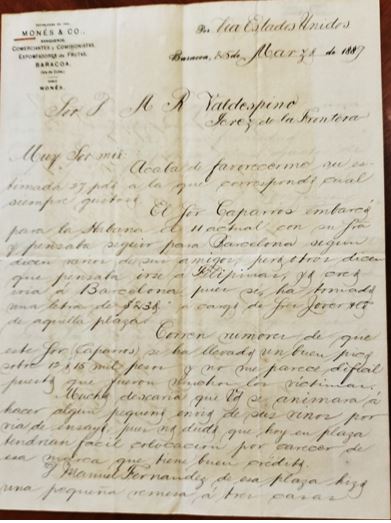 MONÉS & CO.,
BANQUEROS,
COMERCIANTES y COMISIONISTAS
EXPORTADORES DE FRUTAS,
BARACOA,
(Isla de Cuba.)
MONÉS.
Por Via Estados Unidos
Baracoa, 25 de Marzo de 1889
Sor. M R Valdespino
Jerez de la Frontera
Muy Sor mio:
Acaba de favorecerme su es-
timada 27 pdo a la que correspondo cual
siempre gustoso.
El Sor Caparros embarcó
para la Habana el 11 actual con su Sra
y pensaba seguir para Barcelona segun
dicen varios de sus amigos, pero otros dicen
que pensaba irse á Filipinas, yo creo
iria á Barcelona pues se ha tomado
una letra de $ á cargo de Sres Jover
de aquella plaza.
Corren rumores de que
este Sor (Caparros) se ha llevado un buen pico
sobre 12 á 15 mil pesos y no me parece dificil
puesto que fueron muchas las victimas.
Mucho desearia que Vd se animara á
hacer algun pequeño envio de sus vinos por
via de ensayo, pues no dudo que hoy en plaza
tendrian facil colocacion por carecer de
esa marca que tiene buen crédito.
Manuel Fernandez de esa plaza hizo
una pequeña remesa á tres casas